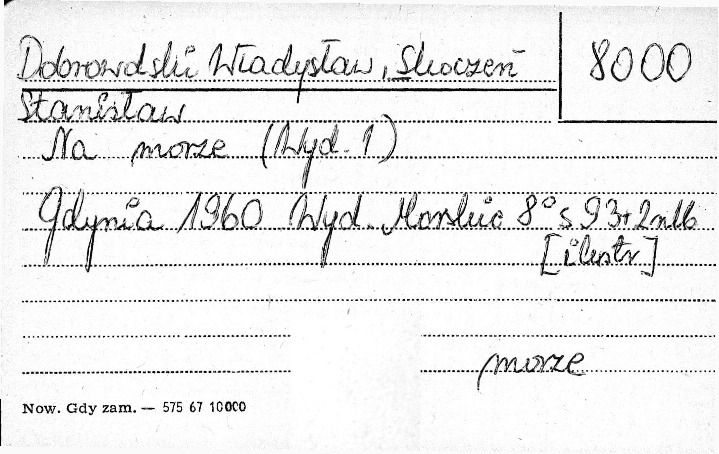 Dobrowolski Władysław, Skoczeń
8000
Stanisław
Na morze (Wyd. 1)
Gdynia 1960 Wyd. Morskie 8° s 93+2nlb
[ilustr]
morze
Now. Gdy zam. — 575 67 10000